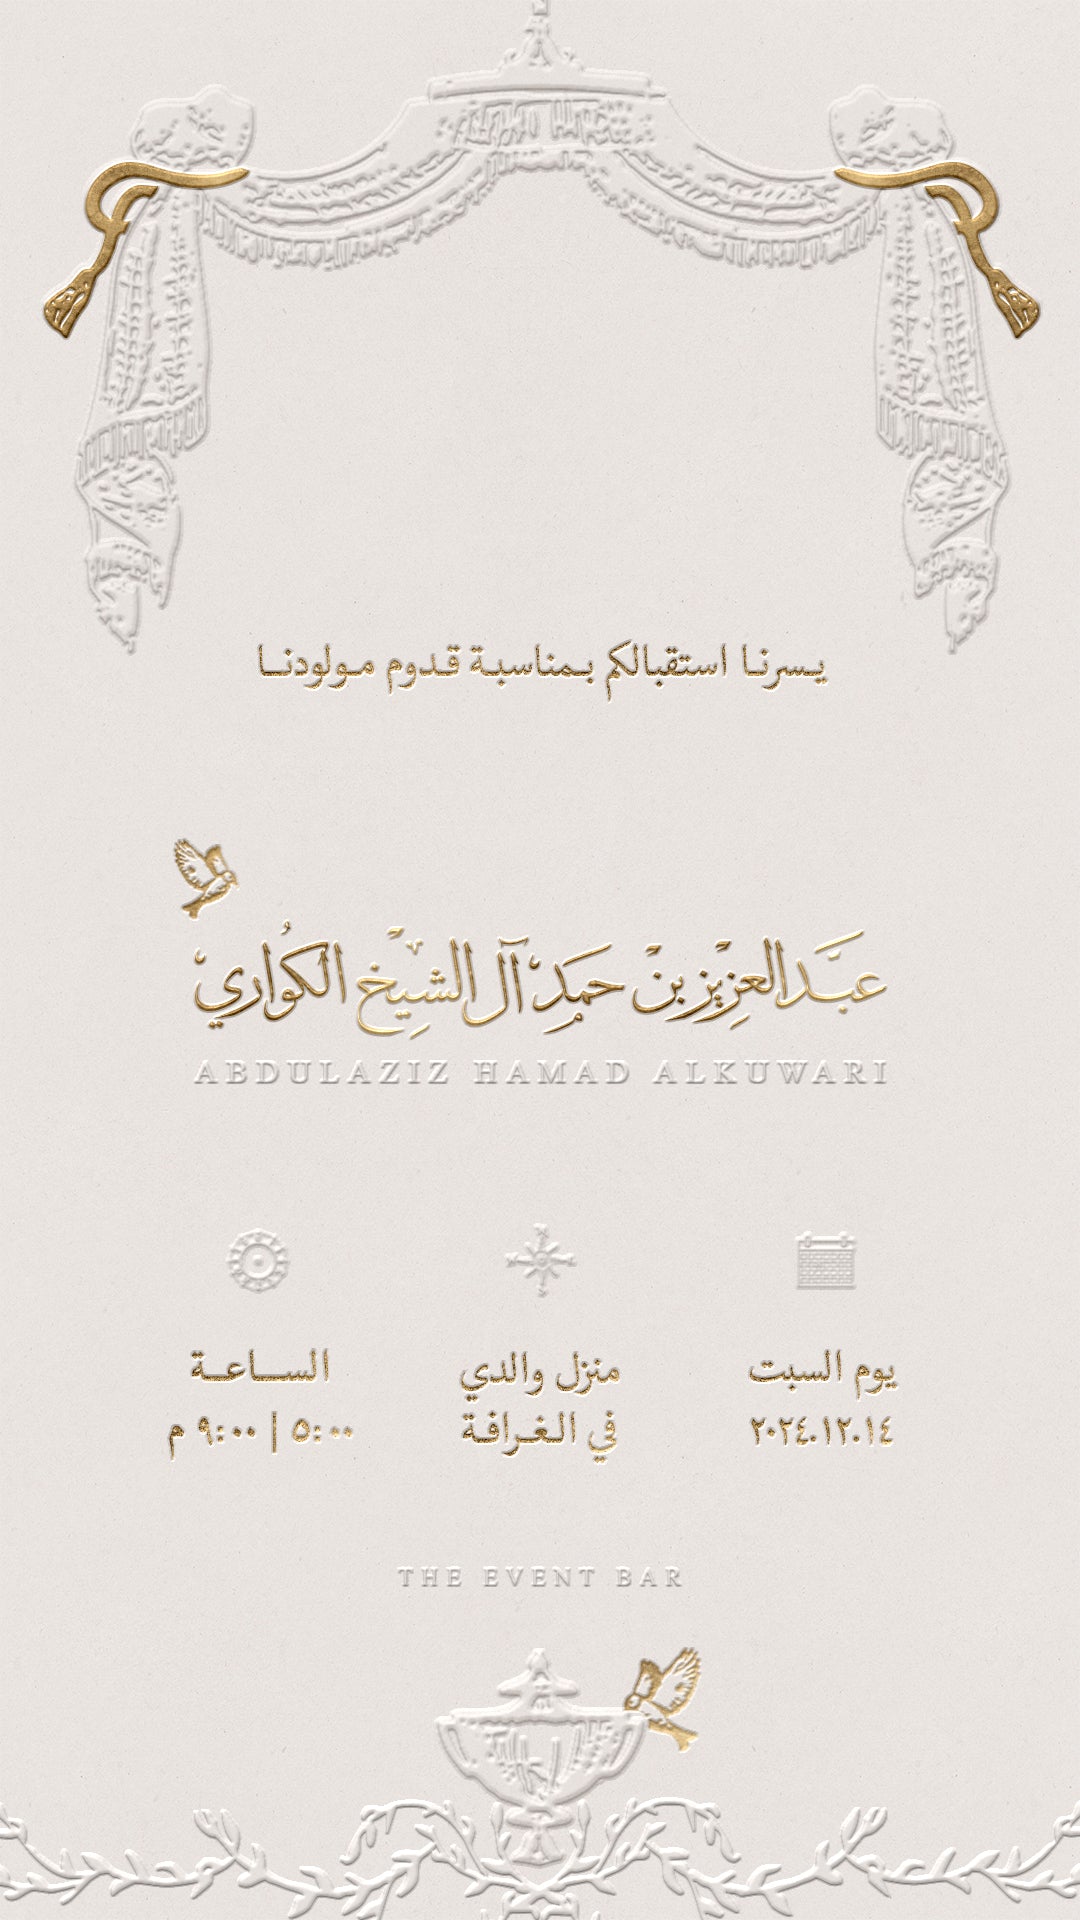 يسرنا استقبالكم بمناسبة قدوم مولودنا
عبدالعزيز بن حمد آل الشيخ الكواري
ABDULAZIZ HAMAD ALKUWARI
يوم السبت
٢٠٢٤.١٢.١٤
منزل والدي
في الغرافة
الساعة
٥:٠٠ | ٩:٠٠ م
THE EVENT BAR